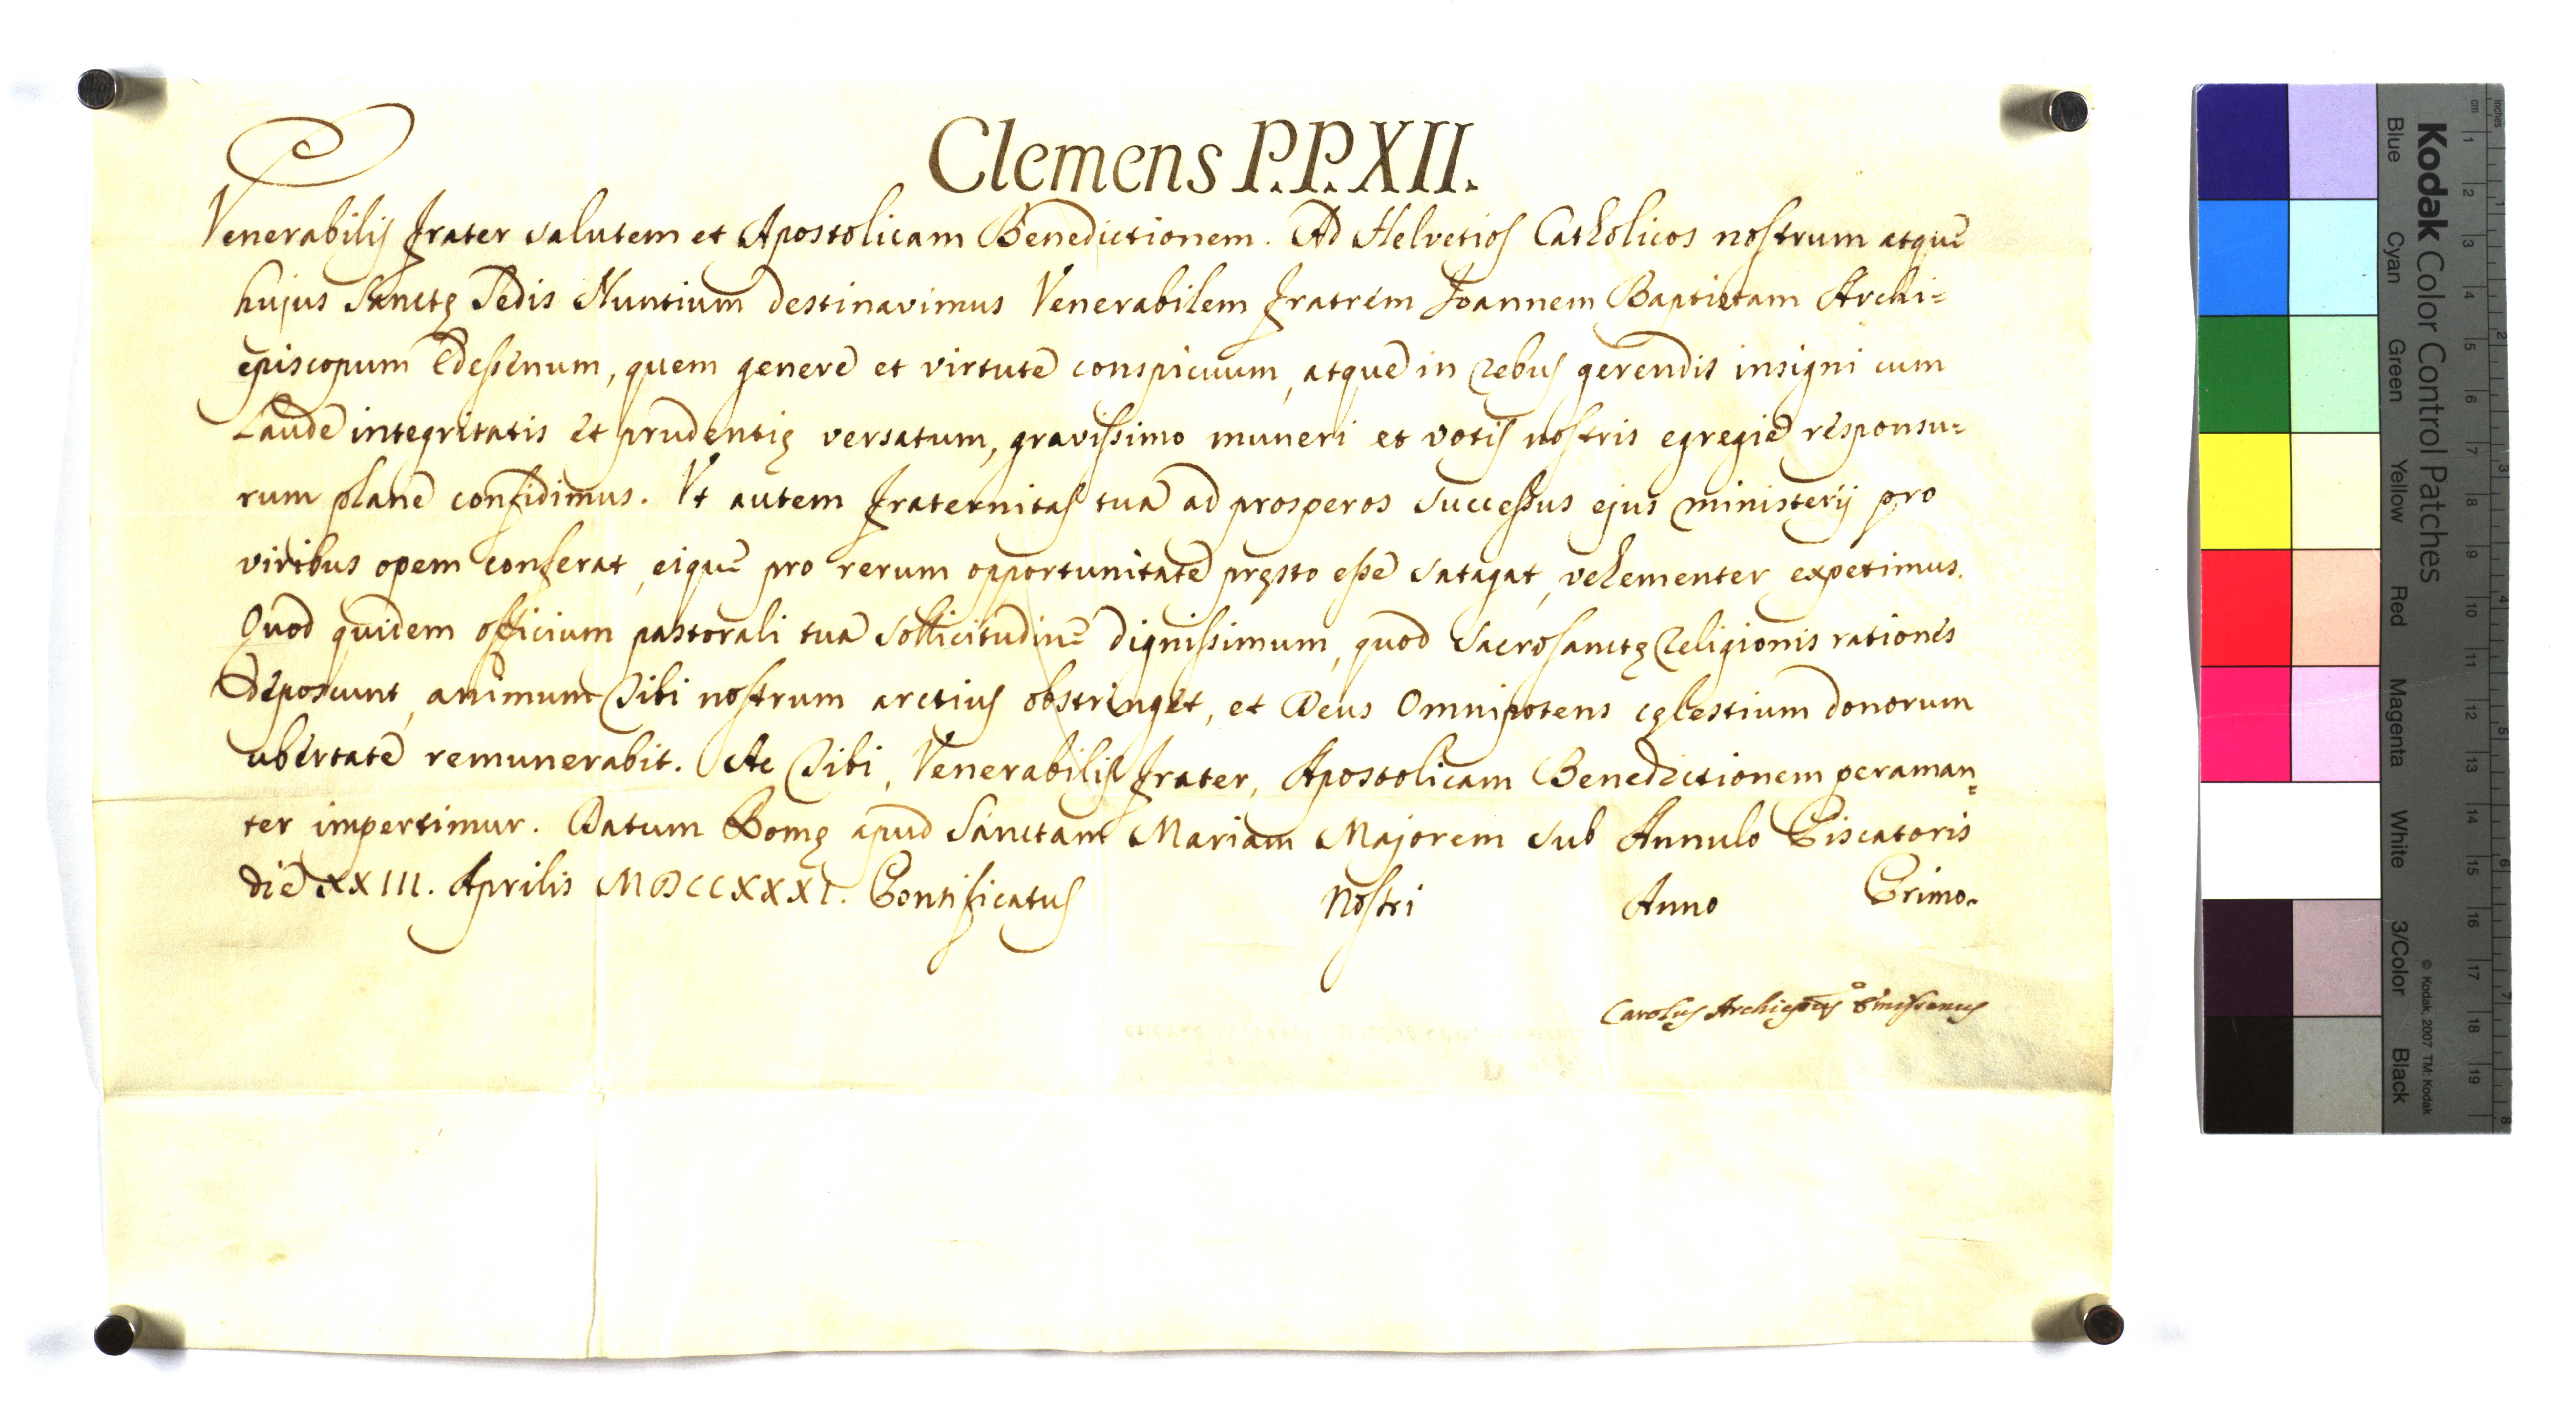 Clemens P.P. XII.
Venerabilis Frater salutem et Apostolicam Benedictionem. Ad Helvetios Catholicos nostrum atque
hujus Sanctę Sedis Nuntium destinavimus Venerabilem Fratrem Joannem Baptistam Archi=
episcopum Edessenum, quem genere et virtute conspicuum, atque in rebus gerendis insigni cum
Laude integritatis et prudentię versatum, gravissimo muneri et votis nostris egregie responsu=
rum plane confidimus. Vt autem Fraternitas tua ad prosperos successus ejus ministerij pro
viribus opem conferat, eique pro rerum opportunitate pręsto esse satagat, vehementer expetimus.
Quod quidem officium pastorali tua sollicitudine dignissimum, quod Sacrosanctę Religionis rationes
deposcunt, animum Tibi nostrum arctius obstringet, et Deus Omnipotens cęlestium donorum
ubertate remunerabit. Ac Tibi, Venerabilis Frater, Apostolicam Benedictionem peraman=
ter impertimur. Datum Romę apud Sanctam Mariam Majorem sub Annulo Piscatoris
die XXIII. Aprilis MDCCXXXI. Pontificatus Nostri Anno Primo.
Carolus Archiepũs Emissenus
Kodak Color Control Patches
Blue Cyan Green Yellow Red Magenta White 3/Color Black
© Kodak, 2007 TM: Kodak
inches 1 2 3 4 5 6 7 8
cm 1 2 3 4 5 6 7 8 9 10 11 12 13 14 15 16 17 18 19